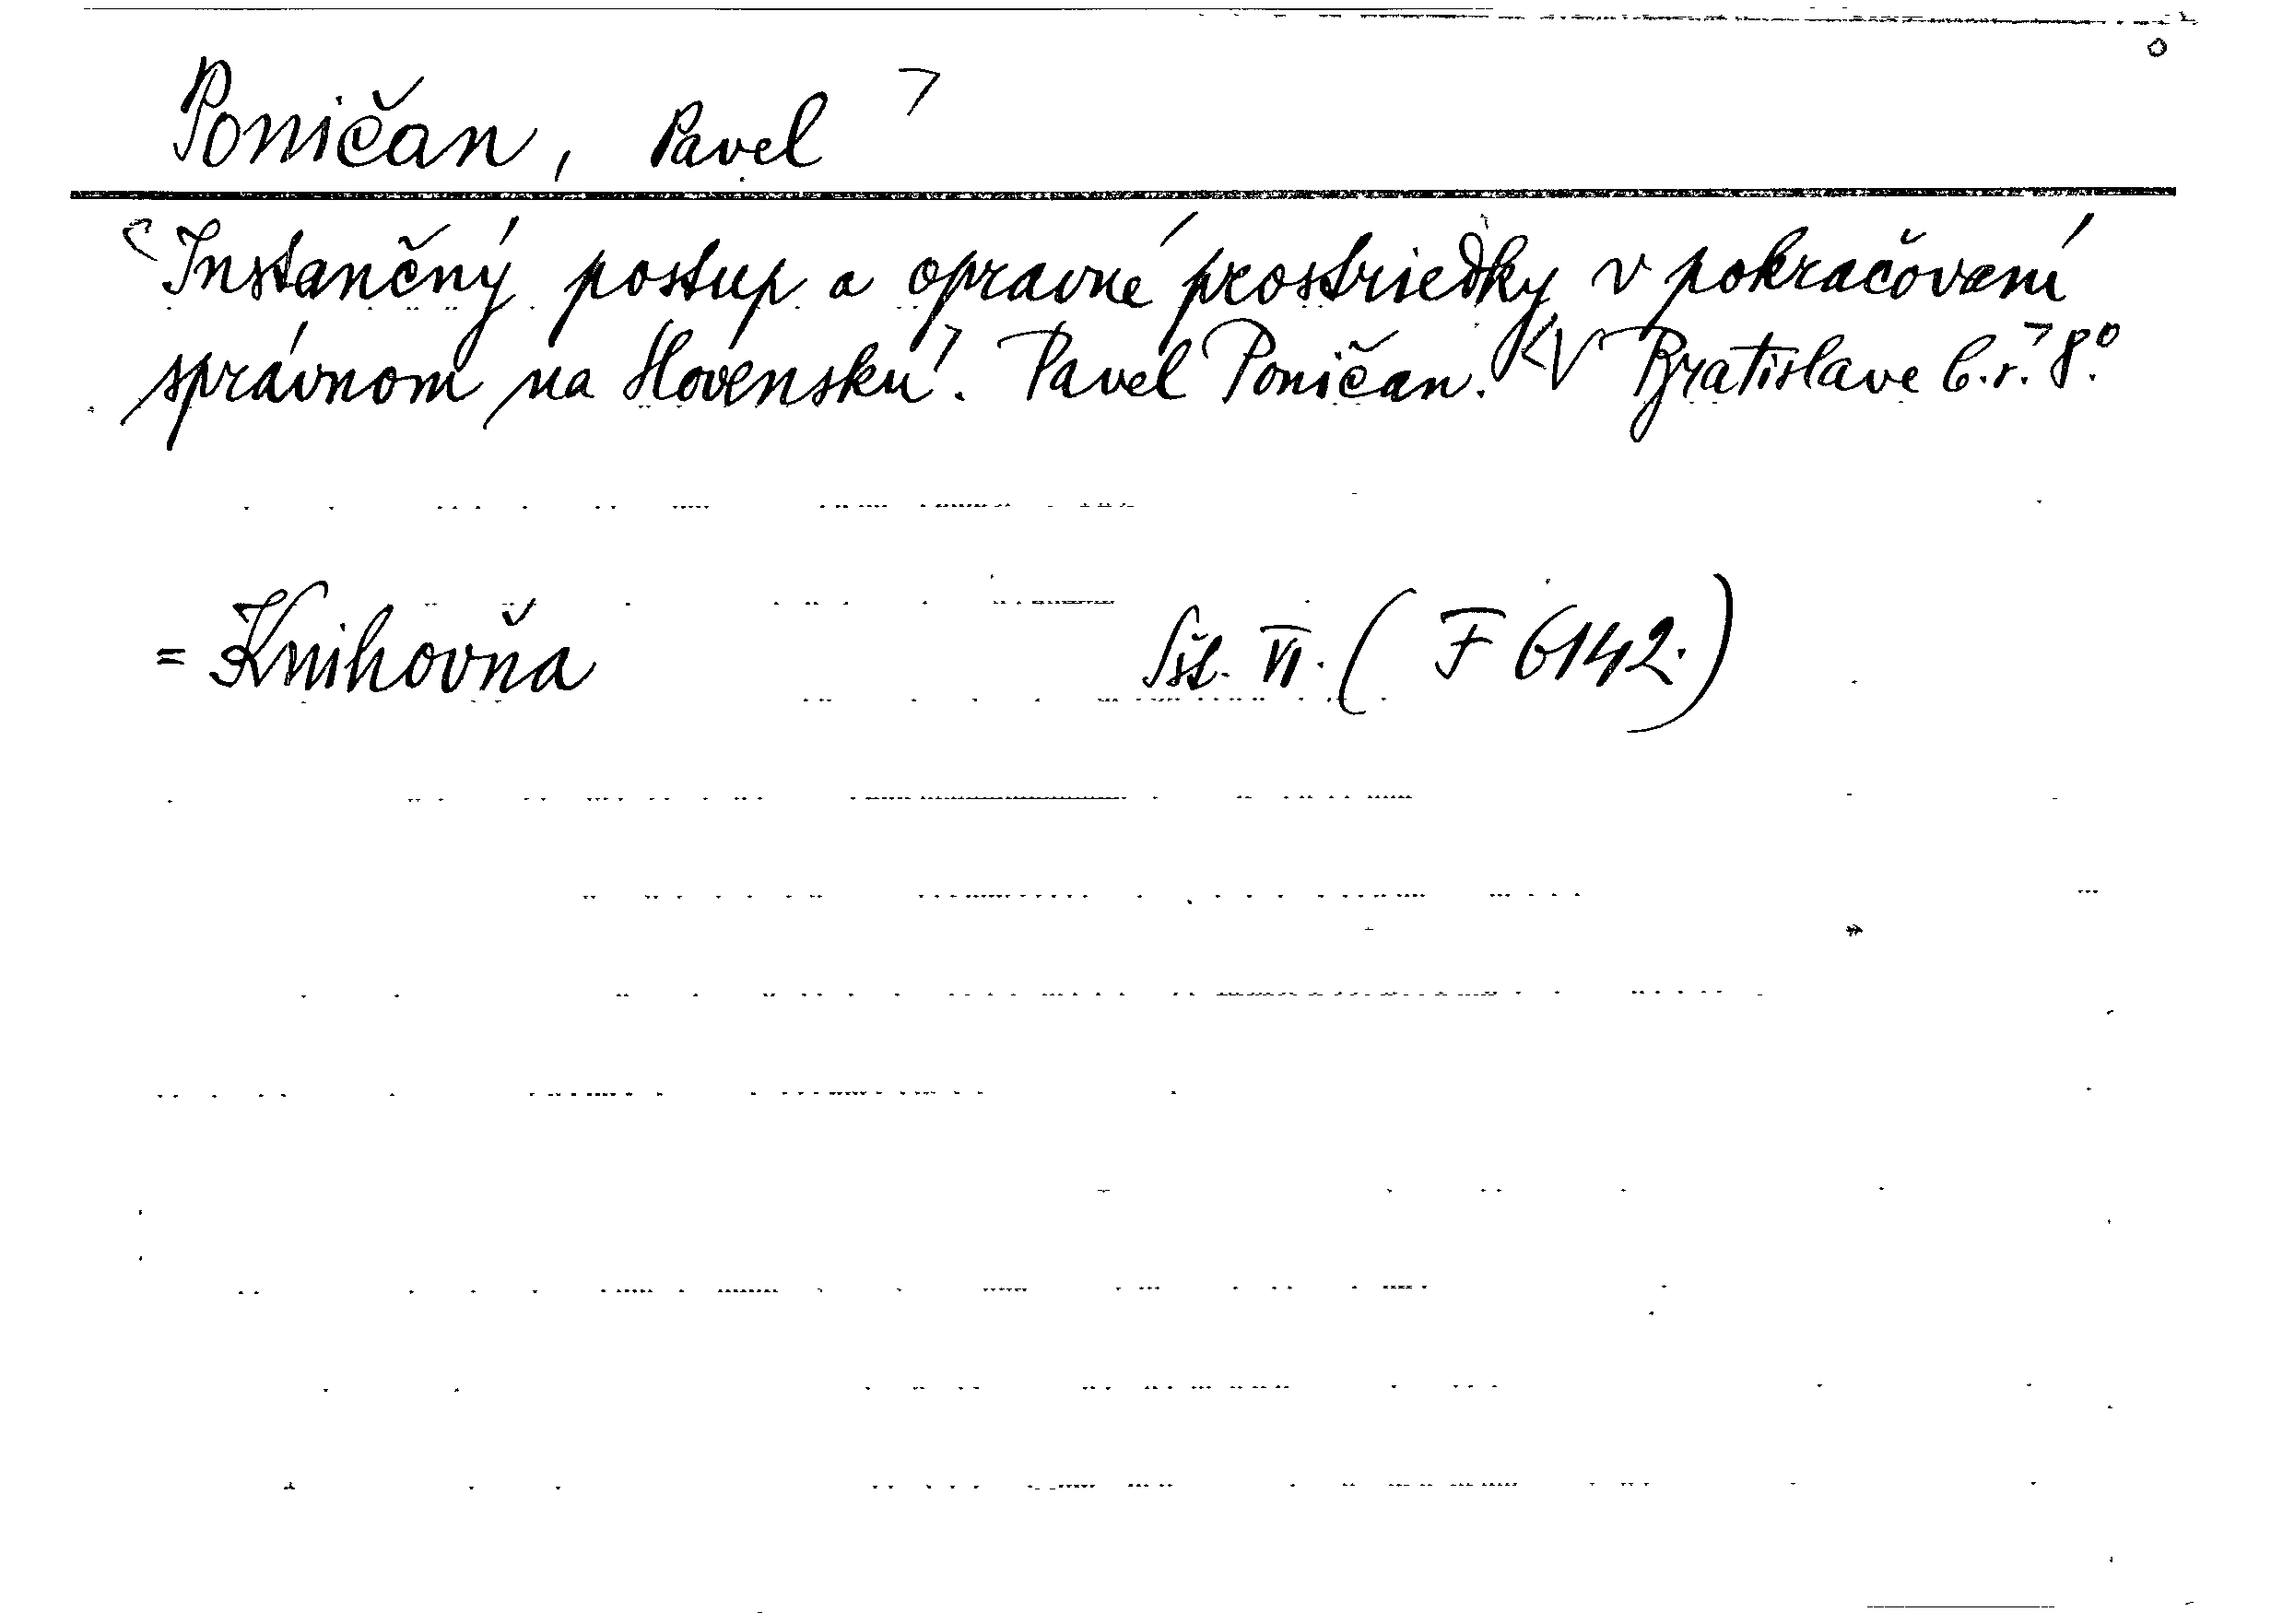 Poničan, Pavel
Instančný postup a opravné prostriedky v pokračovaní
správnom na Slovensku. Pavel Poničan. V Bratislave b.r. 8°.
= Knihovňa VI. (F 6142.)